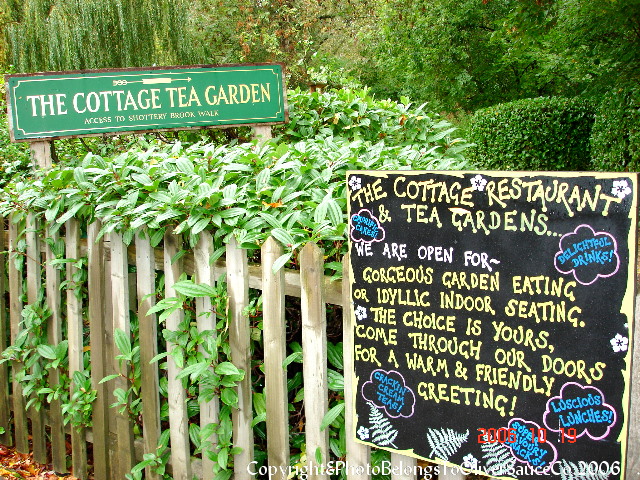 THE COTTAGE TEA GARDEN
ACCESS TO SHOTTERY BROOK WALK
THE COTTAGE RESTAURANT
& TEA GARDENS...
DELIGHTFUL
DRINKS!
WE ARE OPEN FOR~
GORGEOUS GARDEN EATING
OR IDYLLIC INDOOR SEATING.
THE CHOICE IS YOURS,
COME THROUGH OUR DOORS
FOR A WARM & FRIENDLY
GREETING!
CRACKIN'
CREAM
TEAS!
LUSCIOUS
LUNCHES!
2006 10 19
Copyright&PhotoBelongsToOliverSauceCo.2006